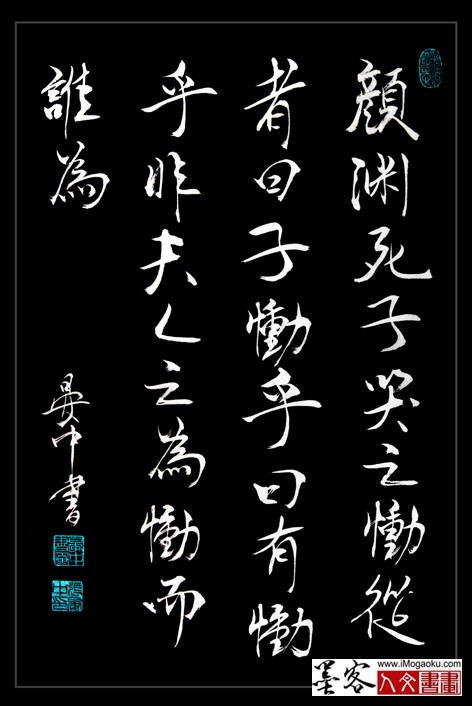 顏渊死子哭之慟從
者曰子慟乎曰有慟
乎非夫人之為慟而
誰為
晏中書
墨客
www.iMogaoku.com
人文書畫